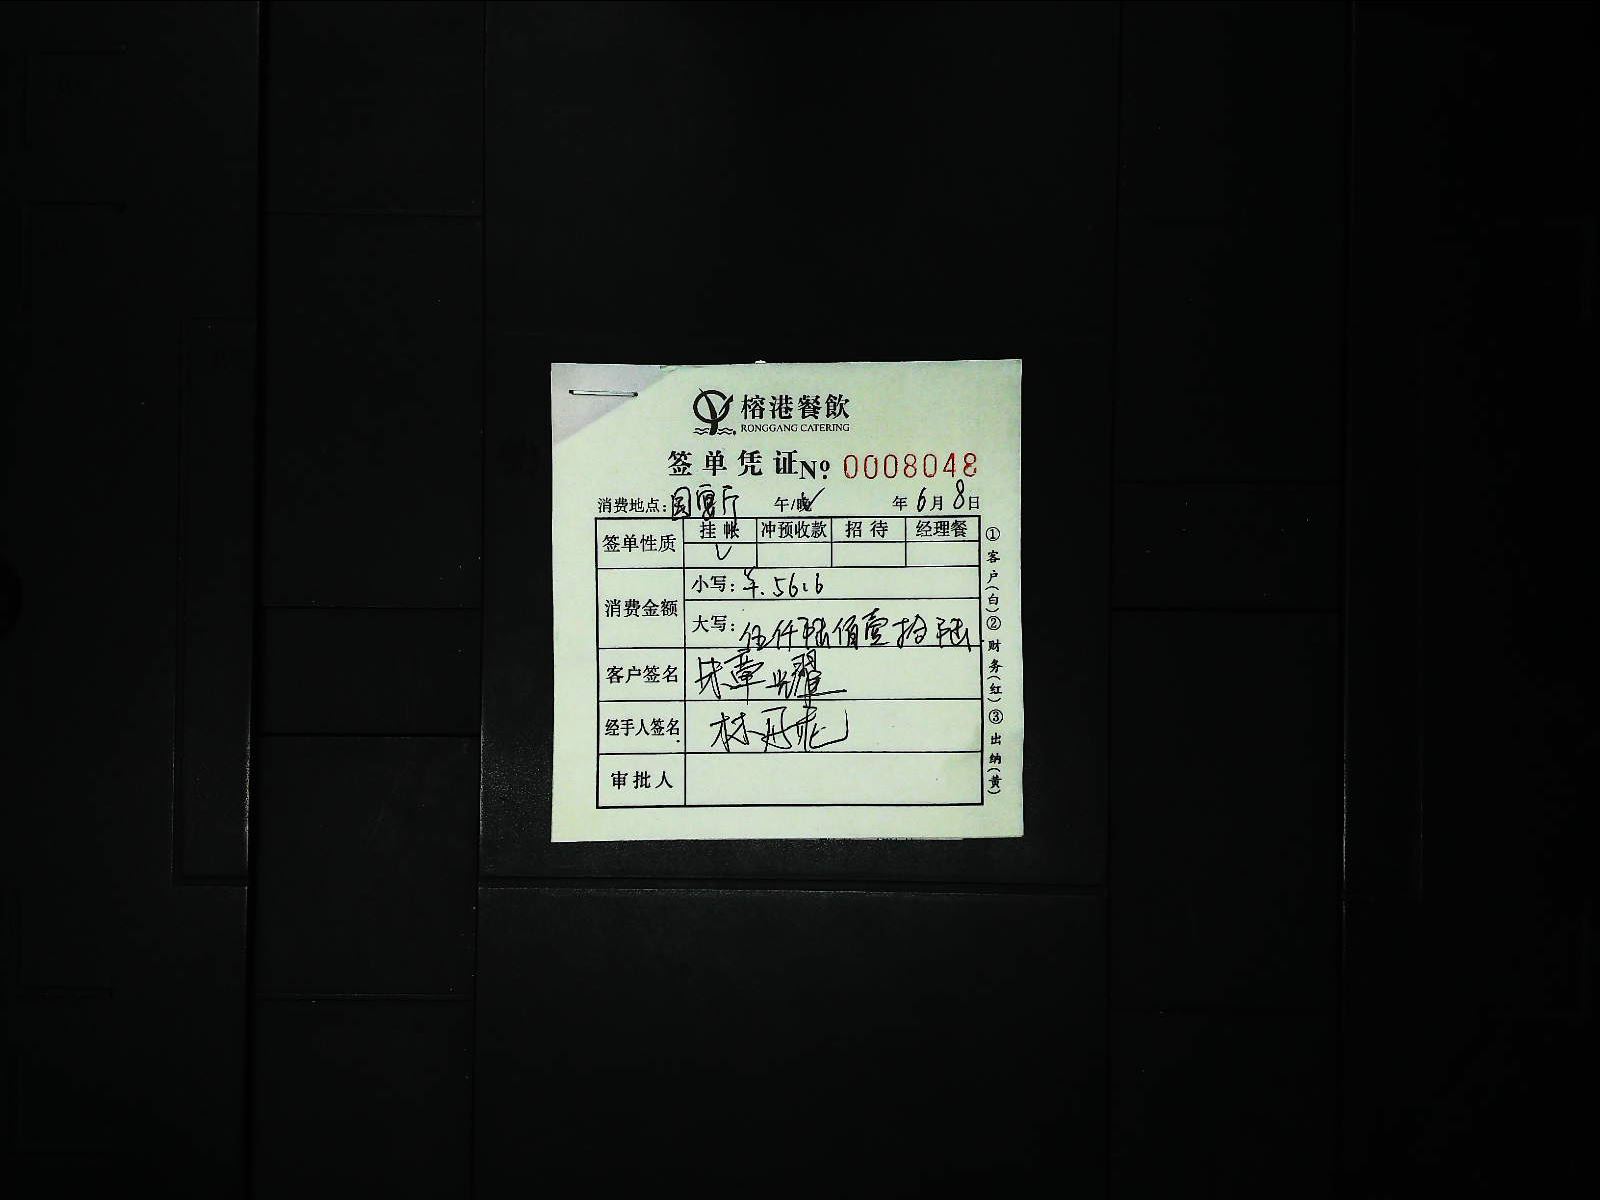 榕港餐飲
RONGGANG CATERING
签单凭证 Nº: 0008048
消费地点: 国宴厅 午/晚 年 6月 8日
签单性质 挂帐 冲预收款 招待 经理餐
√
消费金额 小写: ¥.5616
大写: 伍仟陆佰壹拾陆
客户签名
经手人签名 林
审批人
①客户(白)②财务(红)③出纳(黄)